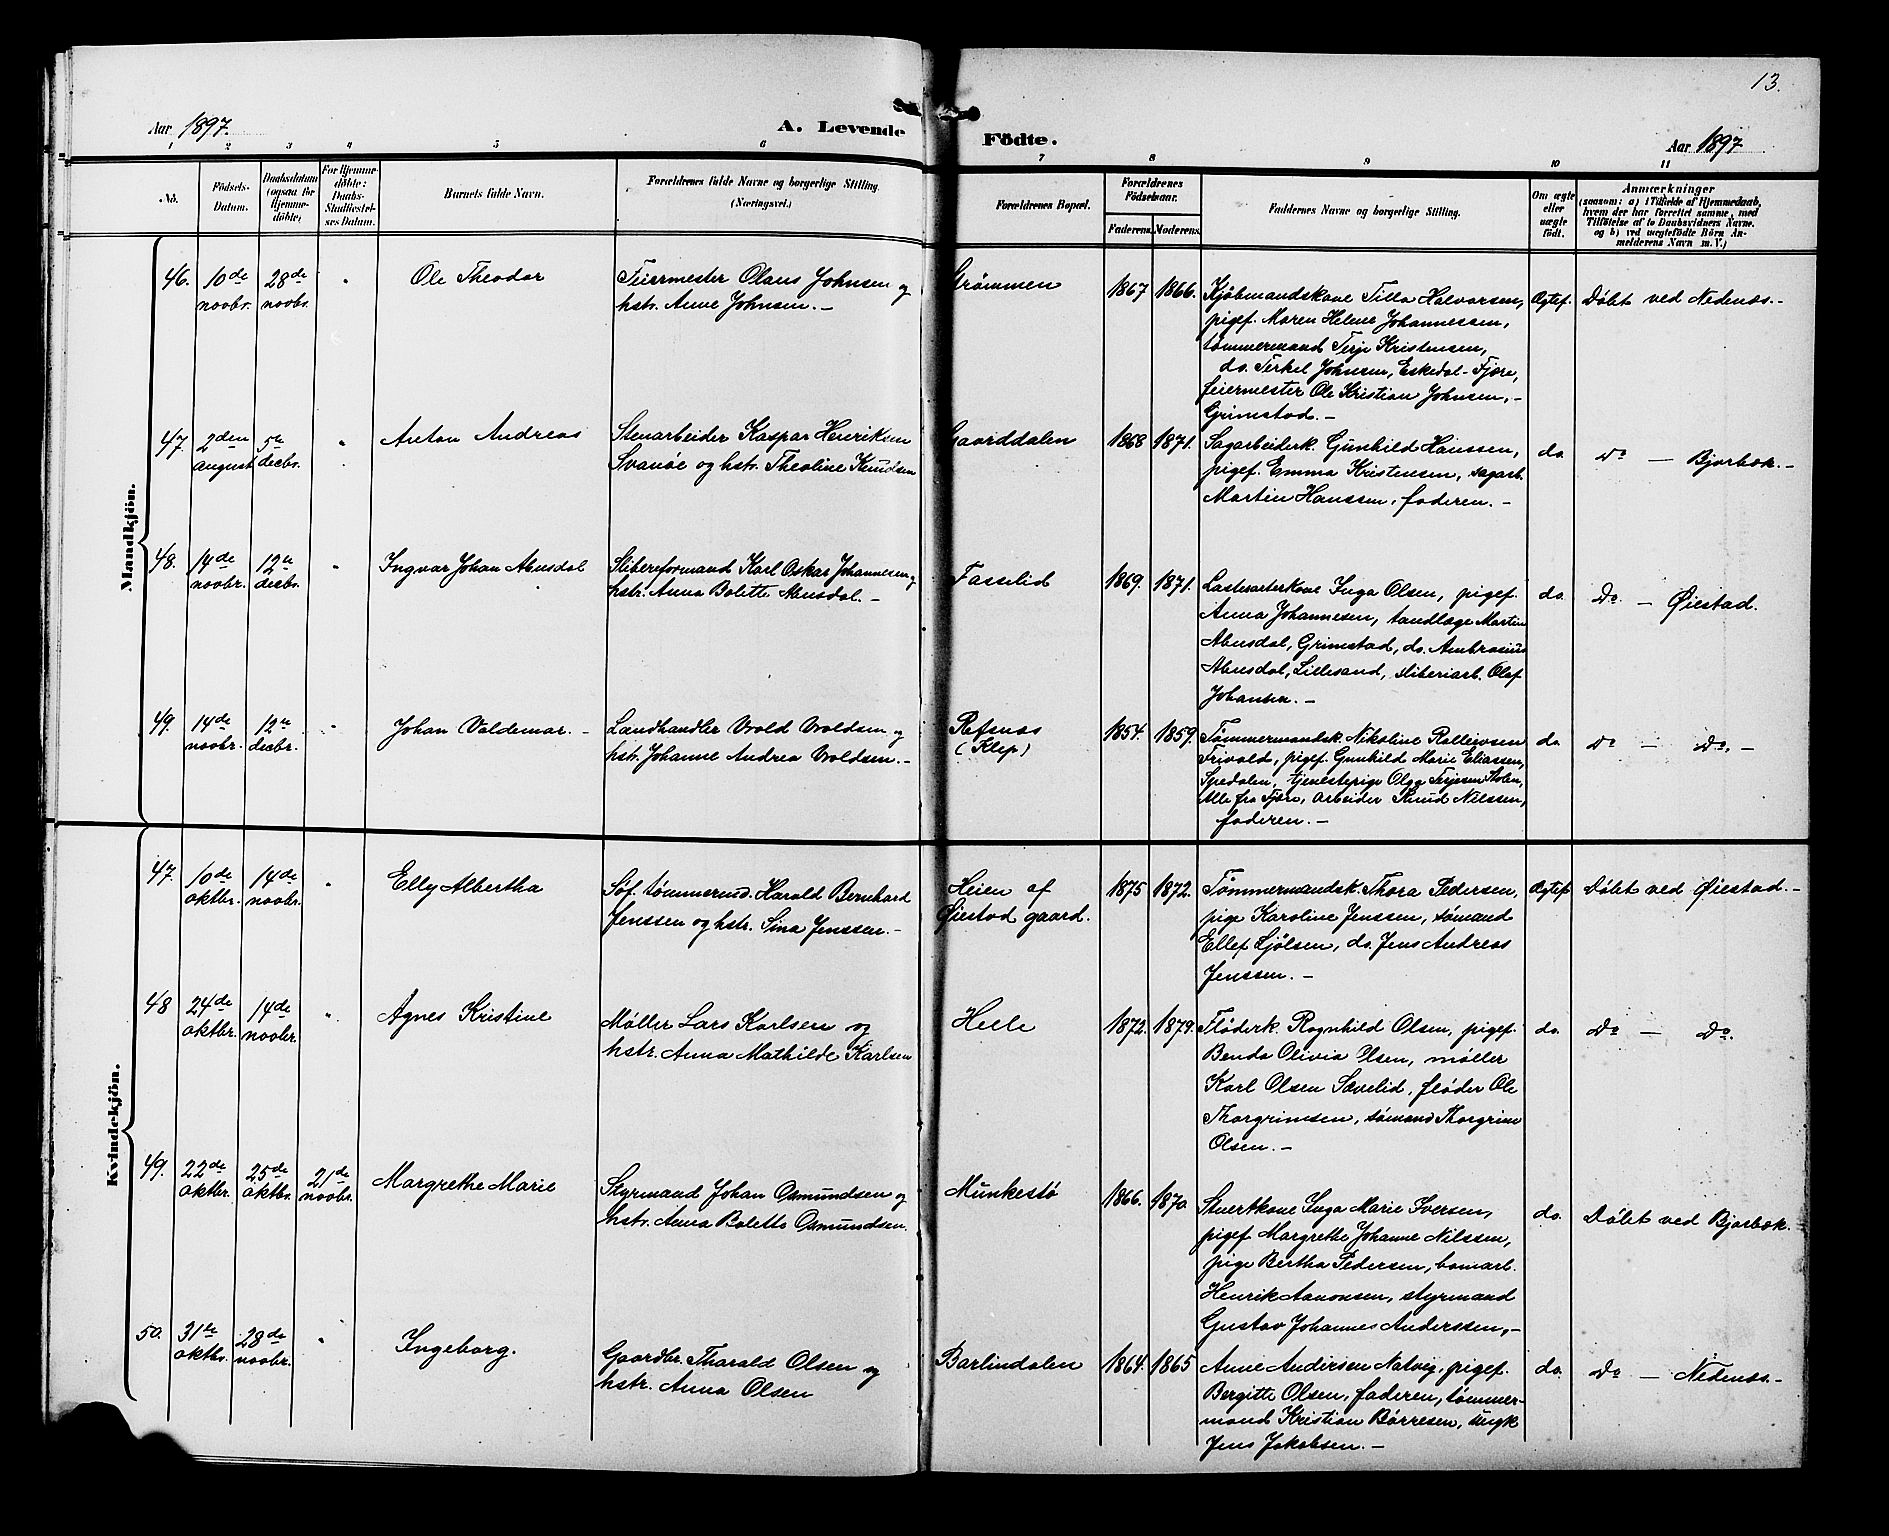 13.
Aar 1897.
A. Levende Födte.
Aar 1897
1 2 3 4 5 6 7 8 9 10 11
No.
Födsels-Datum.
Daabsdatum (ogsaa for Hjemmedöbte)
For Hjemmedöbte: Daabs-Stadfæstelses Datum.
Barnets fulde Navn.
Forældrenes fulde Navne og borgerlige Stilling.
(Næringsvei.)
Forældrenes Bopæl.
Forældrenes Födselsaar.
Faderens. Moderens.
Faddernes Navne og borgerlige Stilling.
Om ægte eller uægte födt.
Anmærkninger
(saasom: a) i Tilfælde af Hjemmedaab,
hvem der har forrettet samme, med
Tilföielse af to Daabsvidners Navne,
og b) ved uægtefödte Börn An-
melderens Navn m. V.)
Mandkjön.
46. 10de novbr. 28de novbr. " Ole Theodor
Feiermester Olaus Johnsen og
hstr. Anne Johnsen.-
Grømmen 1867 1866.
Kjøbmandskone Tilla Halvorsen,
pigef. Maren Helene Johannessen,
tømmermand Terje Kristensen,
do. Terkel Johnsen, Eskedal-Fjære,
feiermester Ole Kristian Johnsen,-
Grimstad.-
Ægtef. Døbt ved Nedenæs.-
47. 2den august 5te decbr. " Anton Andreas
Stenarbeider Kaspar Henriksen
Svanøe og hstr. Theoline Knudsen
Gaarddalen 1868 1871.
Sagarbeiderk. Gunhild Hanssen,
pigef. Emma Kristensen, sagarb.
Martin Hanssen, faderen.-
do. Do - Bjorbæk.-
48. 14de novbr. 12te decbr. " Ingvar Johan Abusdal
Sliberiformand Karl Oskar Johannesen og
hstr. Anna Bolette Abusdal.-
Fasselid 1869. 1871.
Lastearbeiterkone Inga Olsen, pigef.
Anna Johannesen, tandlæge Martin
Abusdal, Grimstad, do. Ambrosius
Abusdal, Lillesand, sliberiarb. Olaf
Johansen.-
do. Do. - Øiestad.
49. 14de novbr. 12te decbr. " Johan Valdemar.-
Landhandler Vrold Vroldsen og
hstr. Johanne Andrea Vroldsen.-
Refsnæs
(Klep)
1854. 1859.
Tømmermandsk. Nikoline Rolleivsen
Frivold, pigef. Gunhild Marie Eliassen,
Spedalen, tjenestepige Olga Terjesen Stolen,
Alle fra Fjære, arbeider Knud Nilssen,
faderen.-
do. Do - Do.-
Kvindekjön.
47. 10de oktbr. 14de novbr. " Elly Albertha
Søf. tømmermd. Harald Bernhard
Jenssen og hstr. Sina Jenssen.-
Heien af
Øiestad gaard.
1875 1872.
Tømmermandsk. Thora Pedersen,
pige Karoline Jenssen, sømand
Ellef Ljølsen, do. Jens Andreas
Jenssen.-
Ægtef. Døbt ved Øiestad.-
48 24de oktbr. 14de novbr. " Agnes Kristine
Møller Lars Karlsen og
hstr. Anna Mathilde Karlsen
Helle 1872. 1879.
Fløderk. Ragnhild Olsen, pigef.
Benda Olivia Olsen, møller
Karl Olsen Sævelid, fløder Ole
Thorgrimsen, sømand Thorgrim
Olsen.-
do. Do - Do.
49. 22de oktbr. 25de oktbr. 21de novbr. Margrethe Marie
Styrmand Johan Osmundsen og
hstr. Anna Bolette Osmundsen.
Munkestø 1866. 1870.
Stuertkone Inga Marie Iversen,
pigef. Margrethe Johanne Nilssen,
pige Bertha Pedersen, bomarb.
Henrik Aanonsen, styrmand
Gustav Johannes Anderssen,-
do. Døbt ved Bjorbæk.
50. 31te oktbr. 28de novbr. " Ingeborg.
Gaardbr. Tharald Olsen og
hstr. Anna Olsen
Barlindalen 1864. 1865
Anne Andersen Natvig, pigef.
Bergitte Olsen, faderen, tømmer-
mand Kristian Børresen, ungk
Jens Jakobsen.-
do. Do - Nedenæs.-